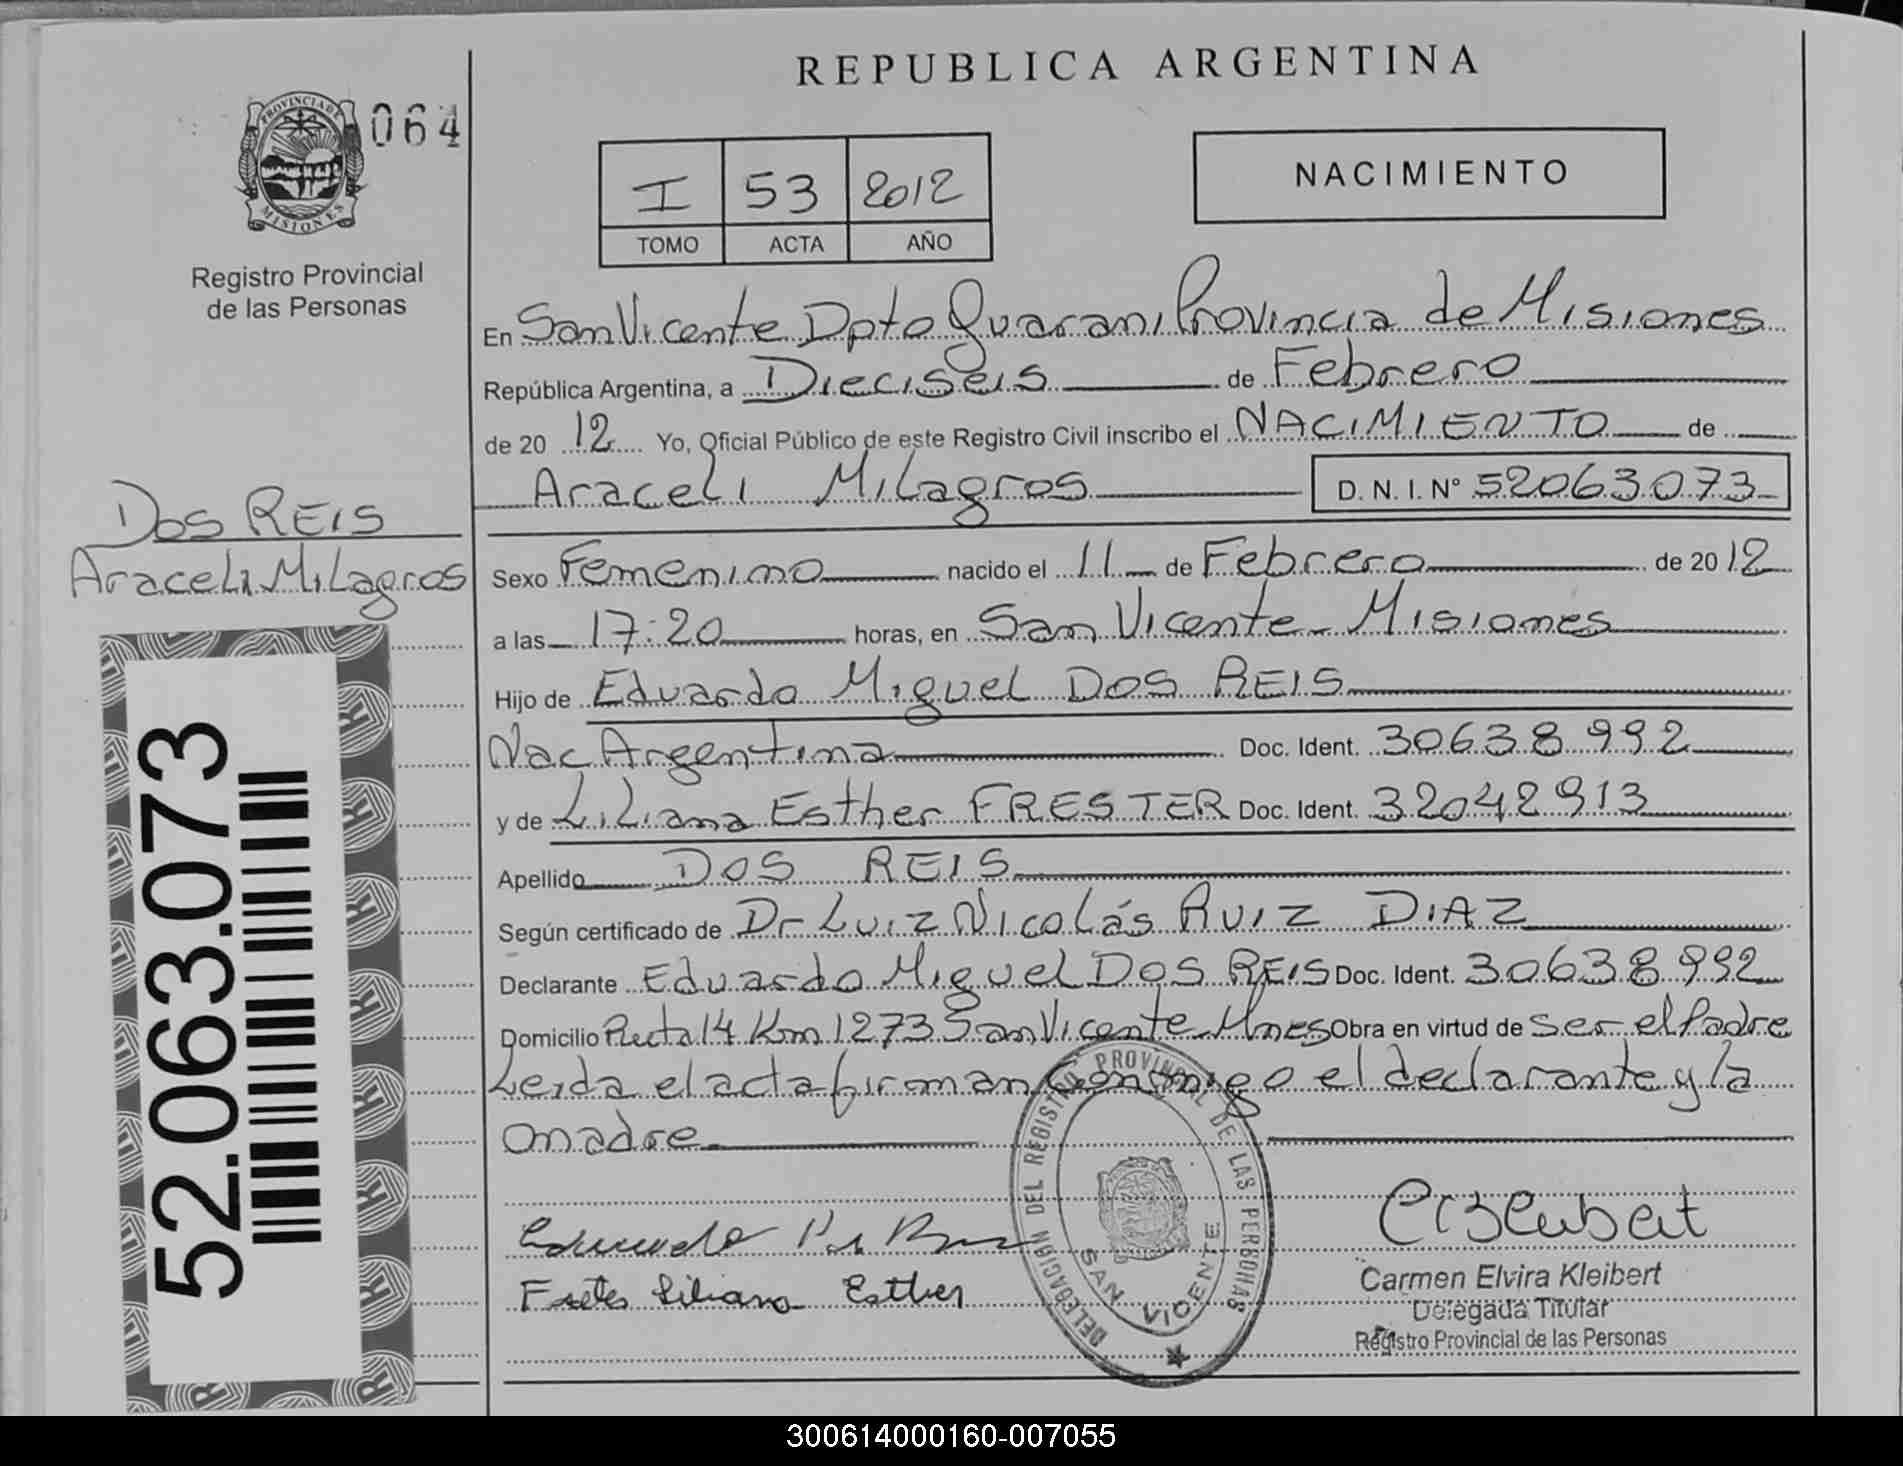 REPUBLICA ARGENTINA
PROVINCIA DE
MISIONES
064
Registro Provincial
de las Personas
I 53 2012
TOMO ACTA AÑO
NACIMIENTO
En San Vicente Dpto Guarani Provincia de Misiones
República Argentina, a Dieciseis de Febrero
de 20 12 Yo, Oficial Público de este Registro Civil inscribo el NACIMIENTO de
Araceli Milagros D. N. I. N° 52063073
DOS REIS
Araceli Milagros
Sexo Femenino nacido el 11 de Febrero de 20 12
a las 17:20 horas, en San Vicente - Misiones
Hijo de Eduardo Miguel DOS REIS
Nac Argentina Doc. Ident. 30638992
y de Liliana Esther FRESTER Doc. Ident. 32042913
Apellido DOS REIS
Según certificado de Dr Luiz Nicolás RUIZ DIAZ
Declarante Eduardo Miguel DOS REIS Doc. Ident. 30638992
Domicilio Ruta 14 Km 1273 San Vicente - Mnes Obra en virtud de ser el Padre
Leida el acta firman conmigo el declarante y la
madre
52.063.073
DELEGACION DEL REGISTRO PROVINCIAL DE LAS PERSONAS
SAN VICENTE
Eduardo
Liliana Esther
Carmen Elvira Kleibert
Delegada Titular
Registro Provincial de las Personas
300614000160-007055